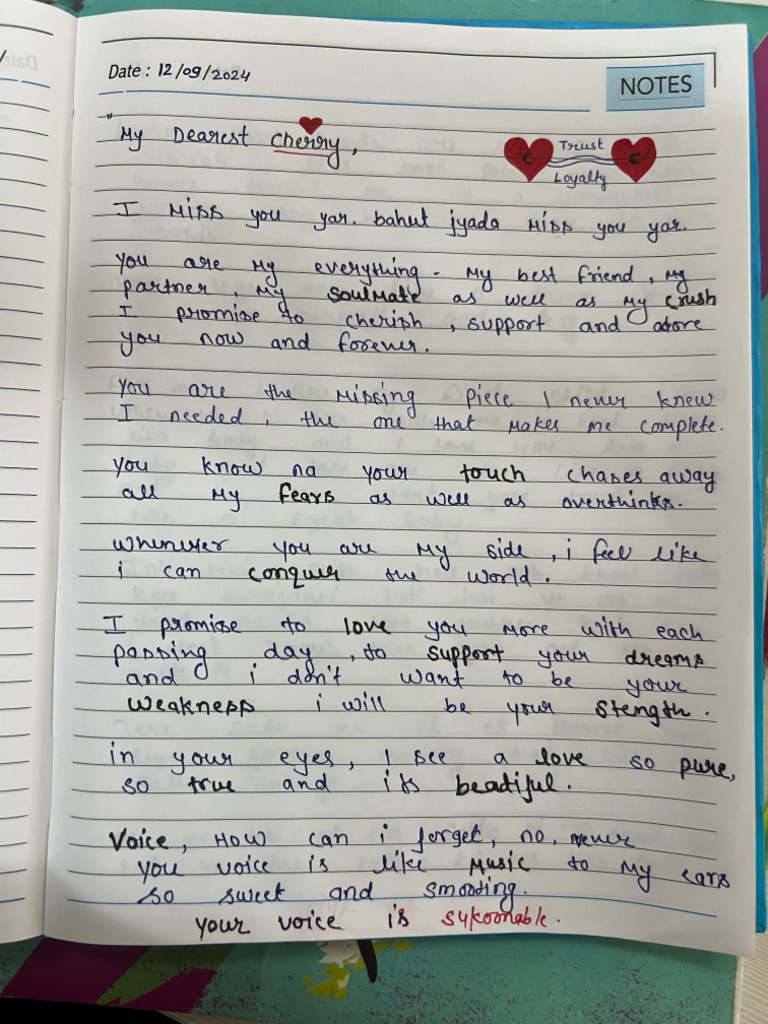 Date : 12/09/2024
NOTES
"My Dearest Cherry,
C Trust C
Loyalty
I Miss you yar. bahut jyada Miss you yar.
You are My everything. My best friend, My
partner My Soulmate as well as My crush
I promise to cherish, support and adore
you now and forever.
You are the Missing Piece I never knew
I needed, the one that makes me complete.
You know na your touch chases away
all My fears as well as overthinks.
Whenever you are My side, i feel like
i can conquer the world.
I promise to love you more with each
passing day, to support your dreams
and i don't want to be your
weakness i will be your Stength.
in your eyes, I see a love so pure,
so true and its beatiful.
Voice, How can i forget, no, never
you voice is like Music to My ears
so sweet and smooting.
your voice is sykoonable.